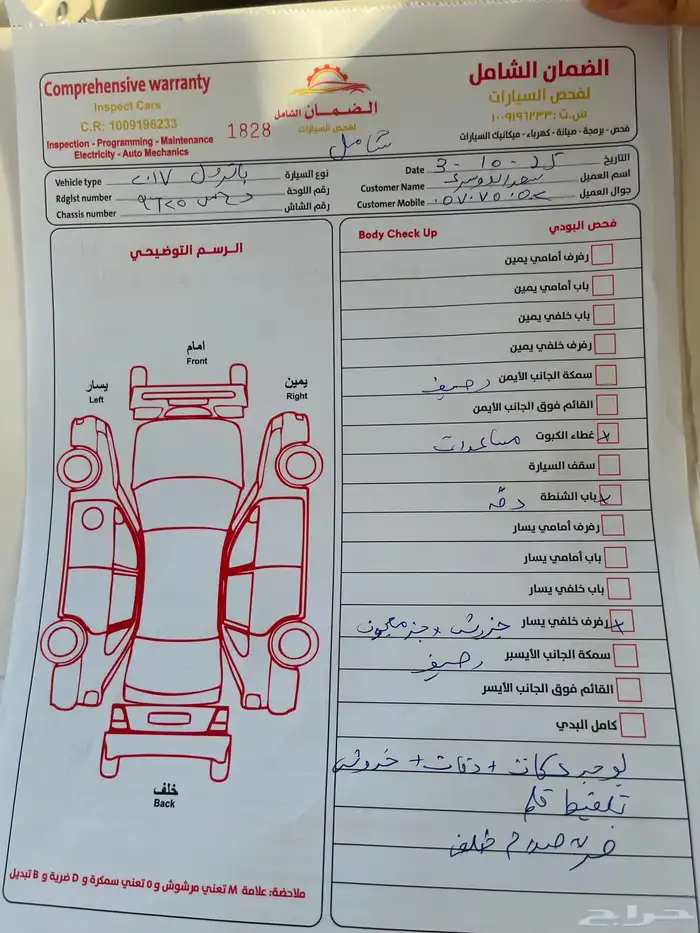 Comprehensive warranty
Inspect Cars
C.R: 1009196233
Inspection - Programming - Maintenance
Electricity - Auto Mechanics
1828
الضمان الشامل
لفحص السيارات
شامل
الضمان الشامل
لفحص السيارات
س.ت: ١٠٠٩١٩٦٢٣٣
فحص - برمجة - صيانة - كهرباء - ميكانيك السيارات
Vehicle type باترول ٢٠١٧ نوع السيارة
Rdglst number ٩٦٢٥ رقم اللوحة
Chassis number رقم الشاش
Date 3-10-25 التاريخ
Customer Name سعد الدوسري اسم العميل
Customer Mobile جوال العميل
الرسم التوضيحي
امام
Front
يسار
Left
يمين
Right
خلف
Back
ملاحضة: علامة M تعني مرشوش و O تعني سمكرة و D ضربة و B تبديل
فحص البودي Body Check Up
رفرف أمامي يمين
باب أمامي يمين
باب خلفي يمين
رفرف خلفي يمين
سمكة الجانب الأيمن رصيف
القائم فوق الجانب الأيمن
غطاء الكبوت مساعدات
سقف السيارة
باب الشنطة دقه
رفرف أمامي يسار
باب أمامي يسار
باب خلفي يسار
رفرف خلفي يسار جزرش + جزء معجون
سمكة الجانب الأيسر رصيف
القائم فوق الجانب الأيسر
كامل البدي
يوجد حكات + دقات + خدوش
تلقيط قلم
ضربه صدام خلف
حراج